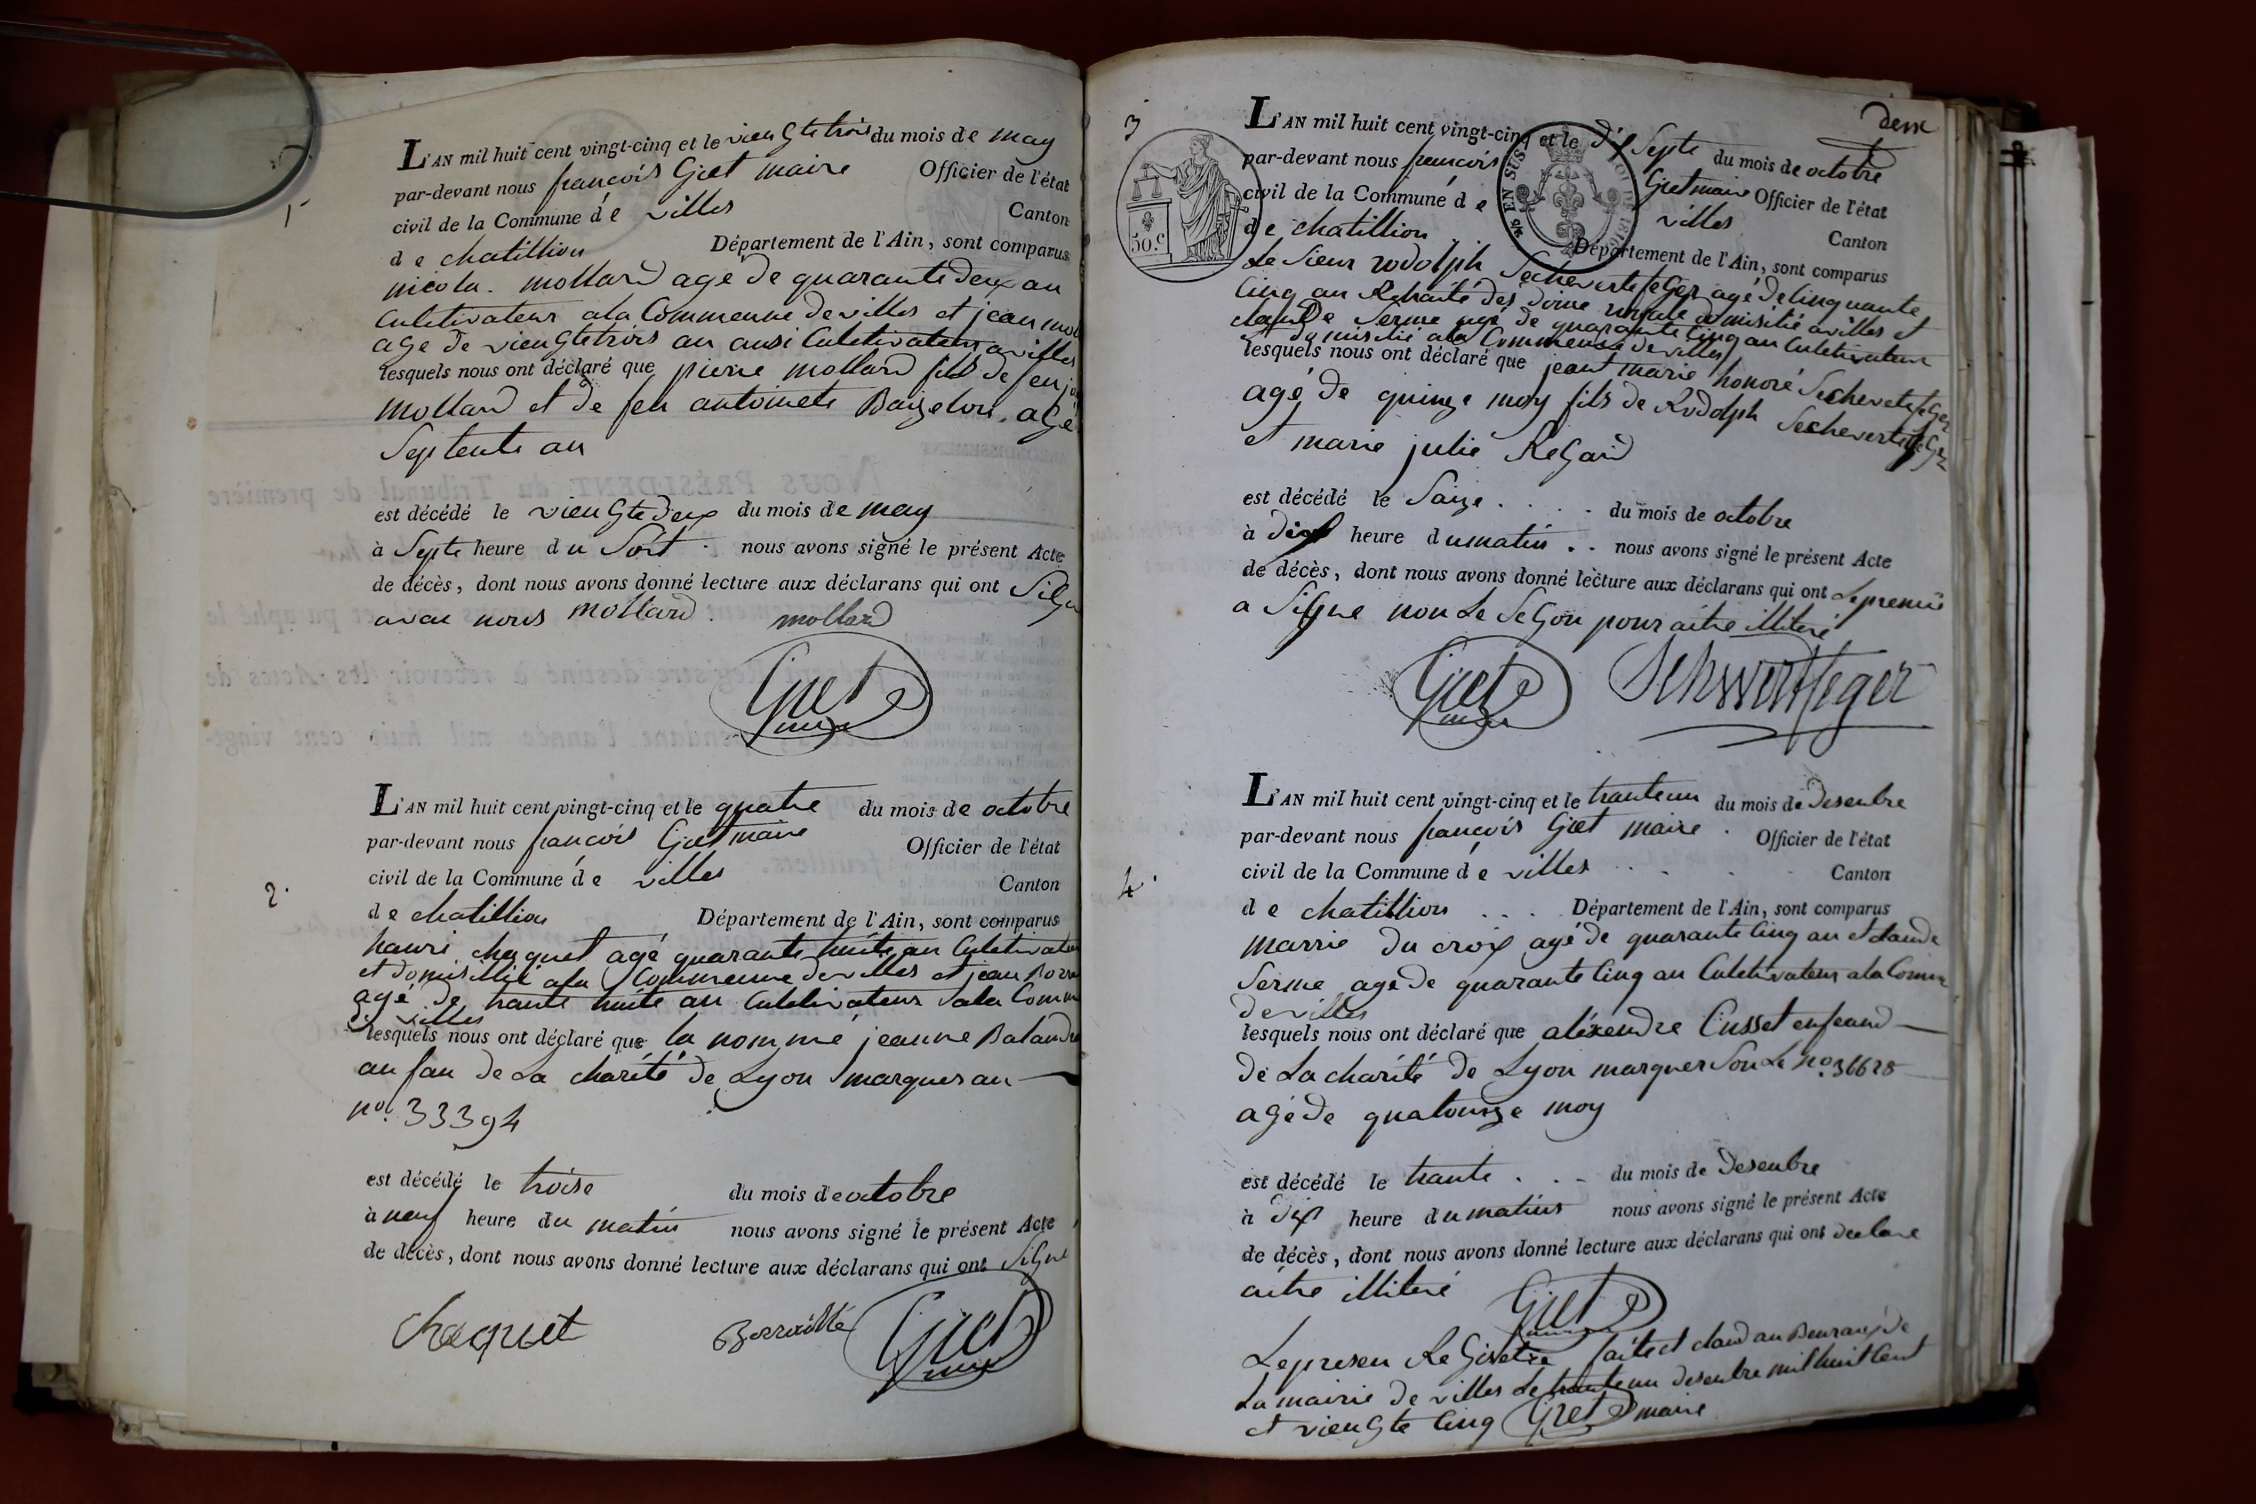 1
L'AN mil huit cent vingt-cinq et le viengtetrois du mois de may
par-devant nous françois Gret maire Officier de l'état
civil de la Commune de villes Canton
de chatillion Département de l'Ain, sont comparus
nicola. mollard age de quarante deux an
Culetivateur ala Commeune de villes et jean mol
age de viengtetrois an ausi Culetivateur avilles
lesquels nous ont déclaré que pierre mollard fils de feu
mollard et de feu antoinete agé
Septente an
est décédé le viengtedeux du mois de may
à Septe heure du Soit nous avons signé le présent Acte
de décès, dont nous avons donné lecture aux déclarans qui ont Signe
avec nous mollard. mollard
Gret maire
2.
L'AN mil huit cent vingt-cinq et le quatre du mois de octobre
par-devant nous françois Gret maire Officier de l'état
civil de la Commune de villes Canton
de chatillion Département de l'Ain, sont comparus
hanri chaquet agé quarante huite an Culetivateur
et domisillié ala Commeune de villes et jean
agé de trante huite an Culetivateur ala Comm
de villes
lesquels nous ont déclaré que la nommé jeanne Balandre
anfan de La charité de Lyon marquer au
no. 33394
est décédé le troise du mois de octobre
à neuf heure du matin nous avons signé le présent Acte
de décès, dont nous avons donné lecture aux déclarans qui ont Signe
chaquet Gret maire
deux
3
50.c
EN SUS
L'AN mil huit cent vingt-cinq et le dix Septe du mois de octobre
par-devant nous françois Gret maire Officier de l'état
civil de la Commune de villes Canton
de chatillion Département de l'Ain, sont comparus
Le Sieur rodolph Sechevertefeger agé de Cinquante
Cinq an Retraité des doine royale domisilié avilles et
claude Serme agé de quarante Cinq an Culetivateur
domisilié ala Commeune de villes
lesquels nous ont déclaré que jeant marie honoré Sechevertefeger
agé de quinze moy fils de Rodolph Sechevertefeger
et marie julie ReGard
est décédé le Saize . . . . du mois de octobre
à dix heure du matin . . nous avons signé le présent Acte
de décès, dont nous avons donné lecture aux déclarans qui ont Le premié
a Signe non Le SeGon pour aitre illiteré
Gret maire Schwertfeger
4.
L'AN mil huit cent vingt-cinq et le tranteun du mois de Desenbre
par-devant nous françois Gret maire . Officier de l'état
civil de la Commune de villes . . . . Canton
de chatillion . . . Département de l'Ain, sont comparus
marrie du croix agé de quarante Cinq an et claude
Serme age de quarante Cinq an Culetivateur ala Comm
de villes
lesquels nous ont déclaré que aléxendre Cusset enfeand
de La charité de Lyon marquer Sou Le no. 36628
agé de quatourze moy
est décédé le trante . . . du mois de Desenbre
à dix heure du matin nous avons signé le présent Acte
de décès, dont nous avons donné lecture aux déclarans qui ont declare
aitre illiteré
Gret maire
Le presen ReGistre faite et claud au Beuraux de
La mairie de villes Le tranteun desenbre mil huit Cent
et viengte Cinq Gret maire